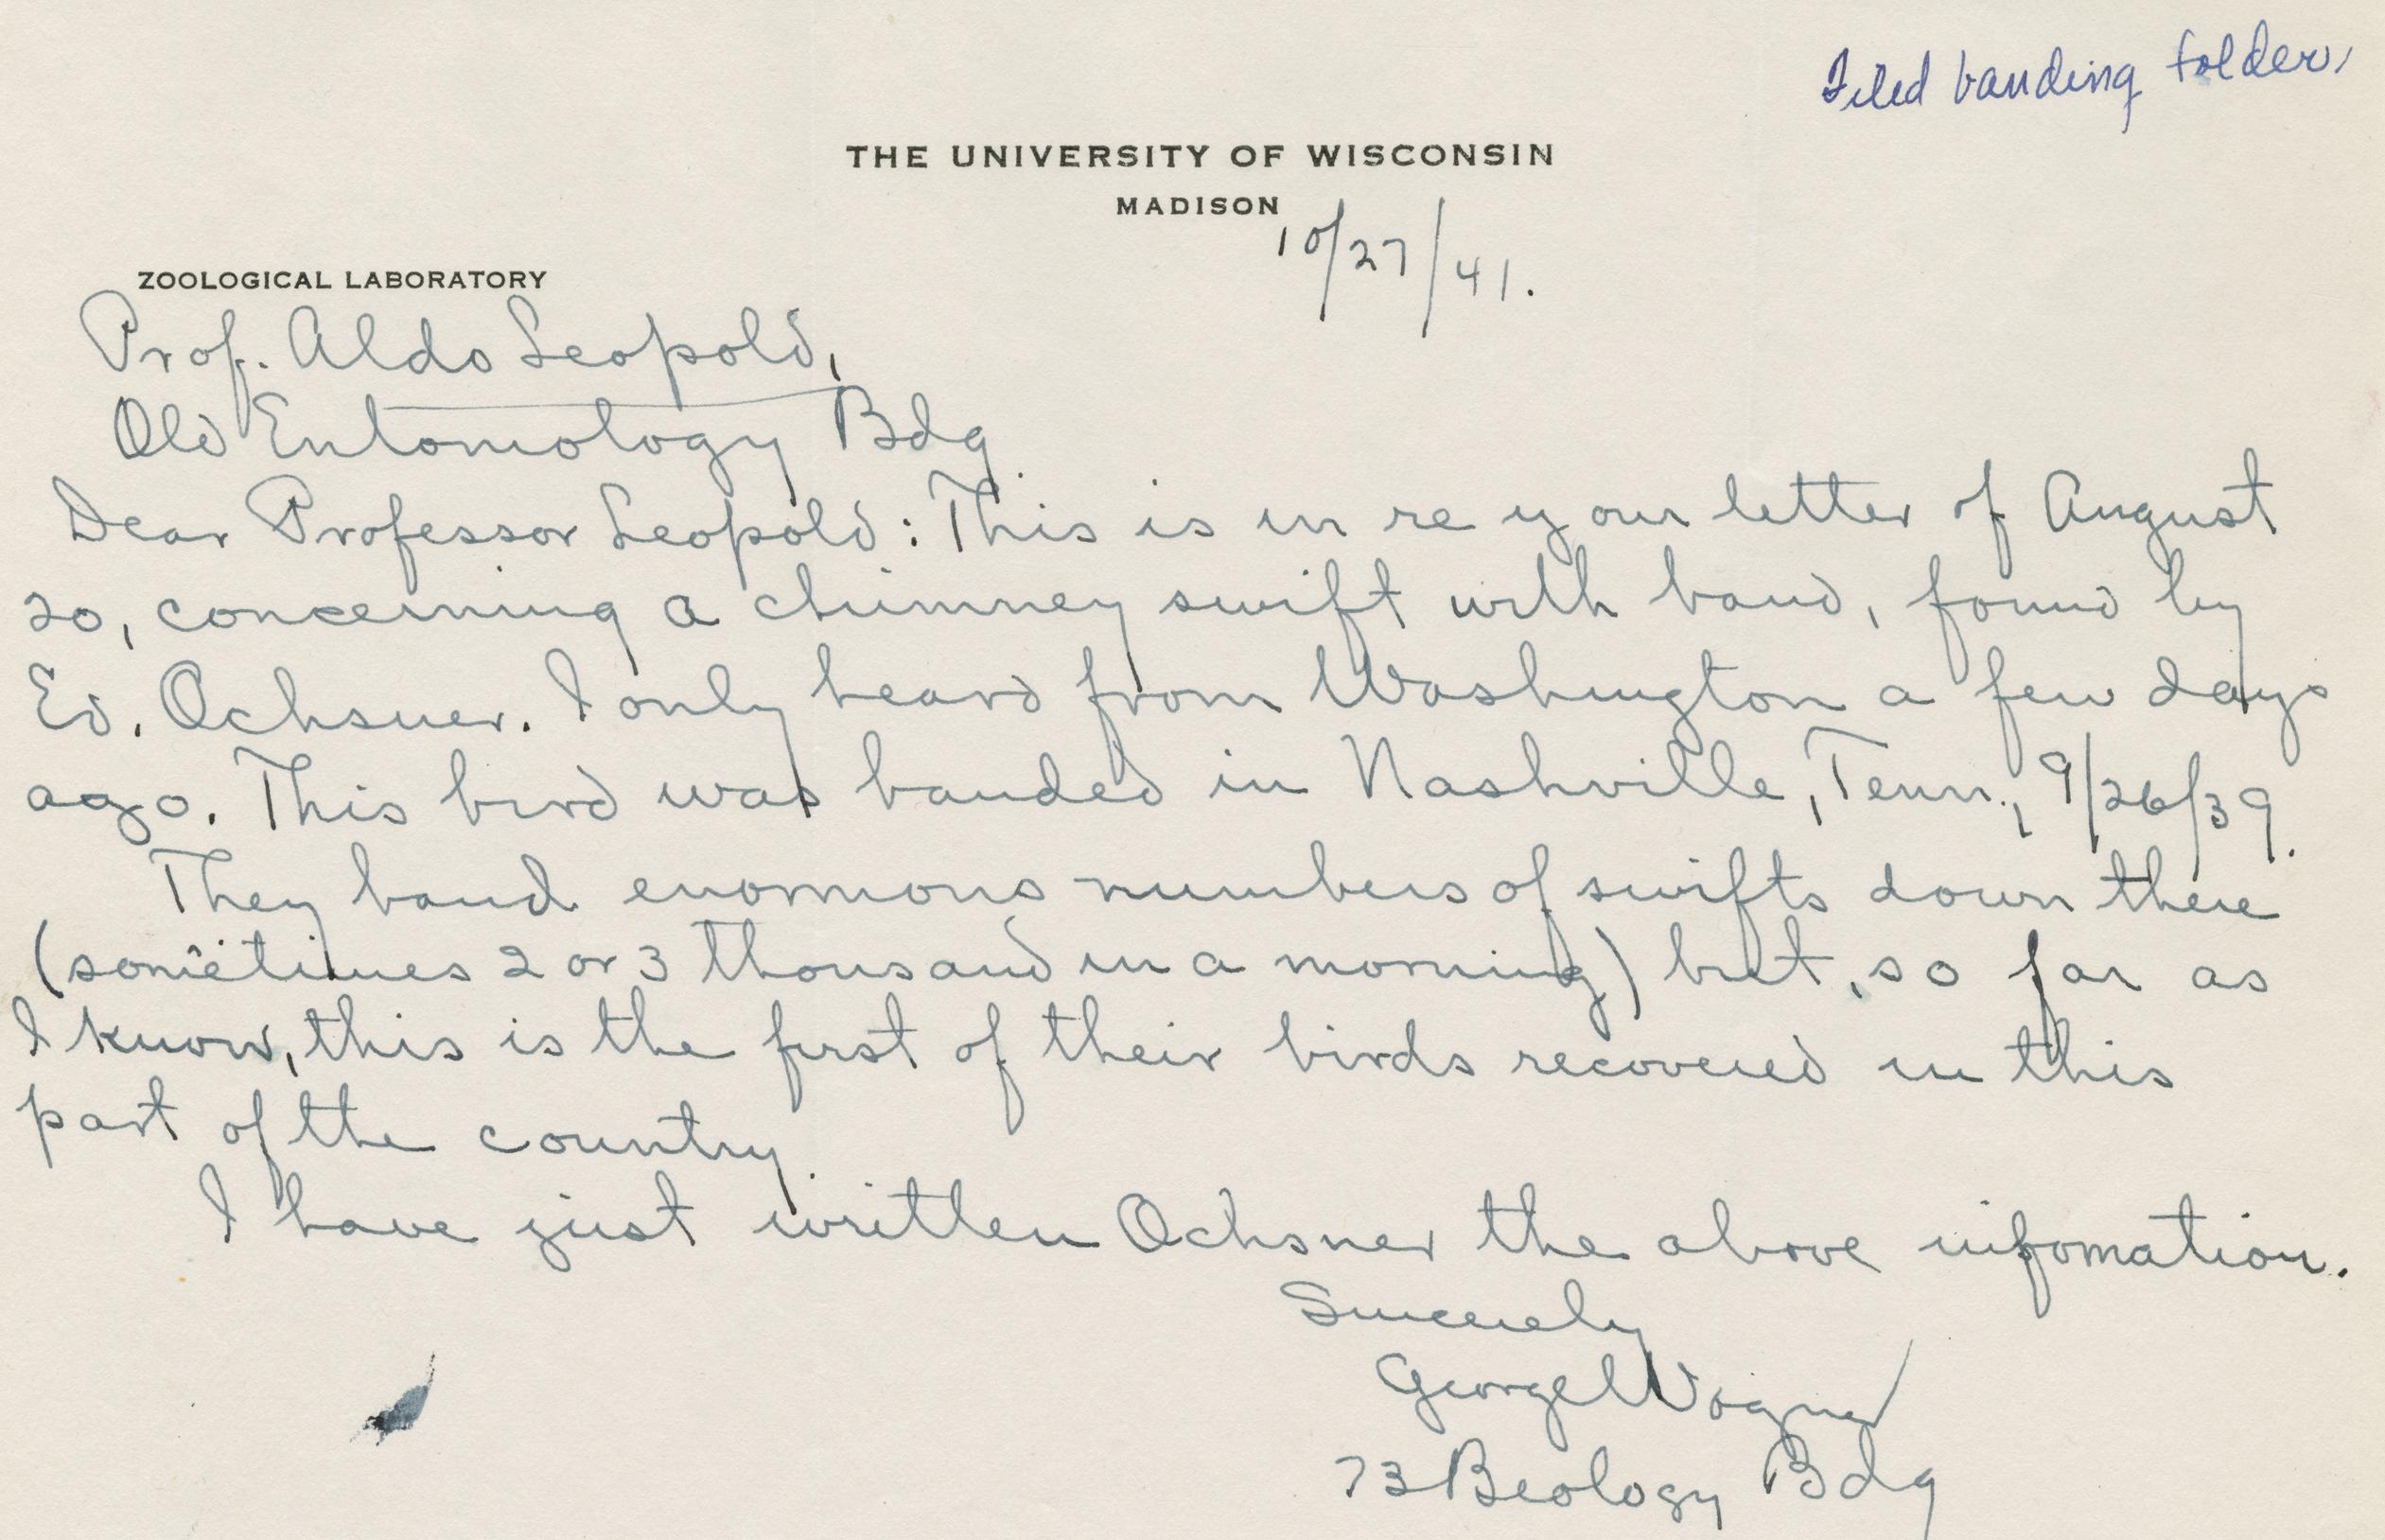 Filed banding folder.
THE UNIVERSITY OF WISCONSIN
MADISON
10/27/41.
ZOOLOGICAL LABORATORY
Prof. Aldo Leopold,
Old Entomology Bdg.
Dear Professor Leopold: This is in re your letter of August
20, concerning a chimney swift with band, found by
Ed. Ochsner. I only heard from Washington a few days
ago. This bird was banded in Nashville, Tenn., 9/26/39.
They band enormous numbers of swifts down there
(sometimes 2 or 3 thousand in a morning) but, so far as
I know, this is the first of their birds recovered in this
part of the country.
I have just written Ochsner the above infomation.
Sincerely
George Wagner
73 Beology Bdg